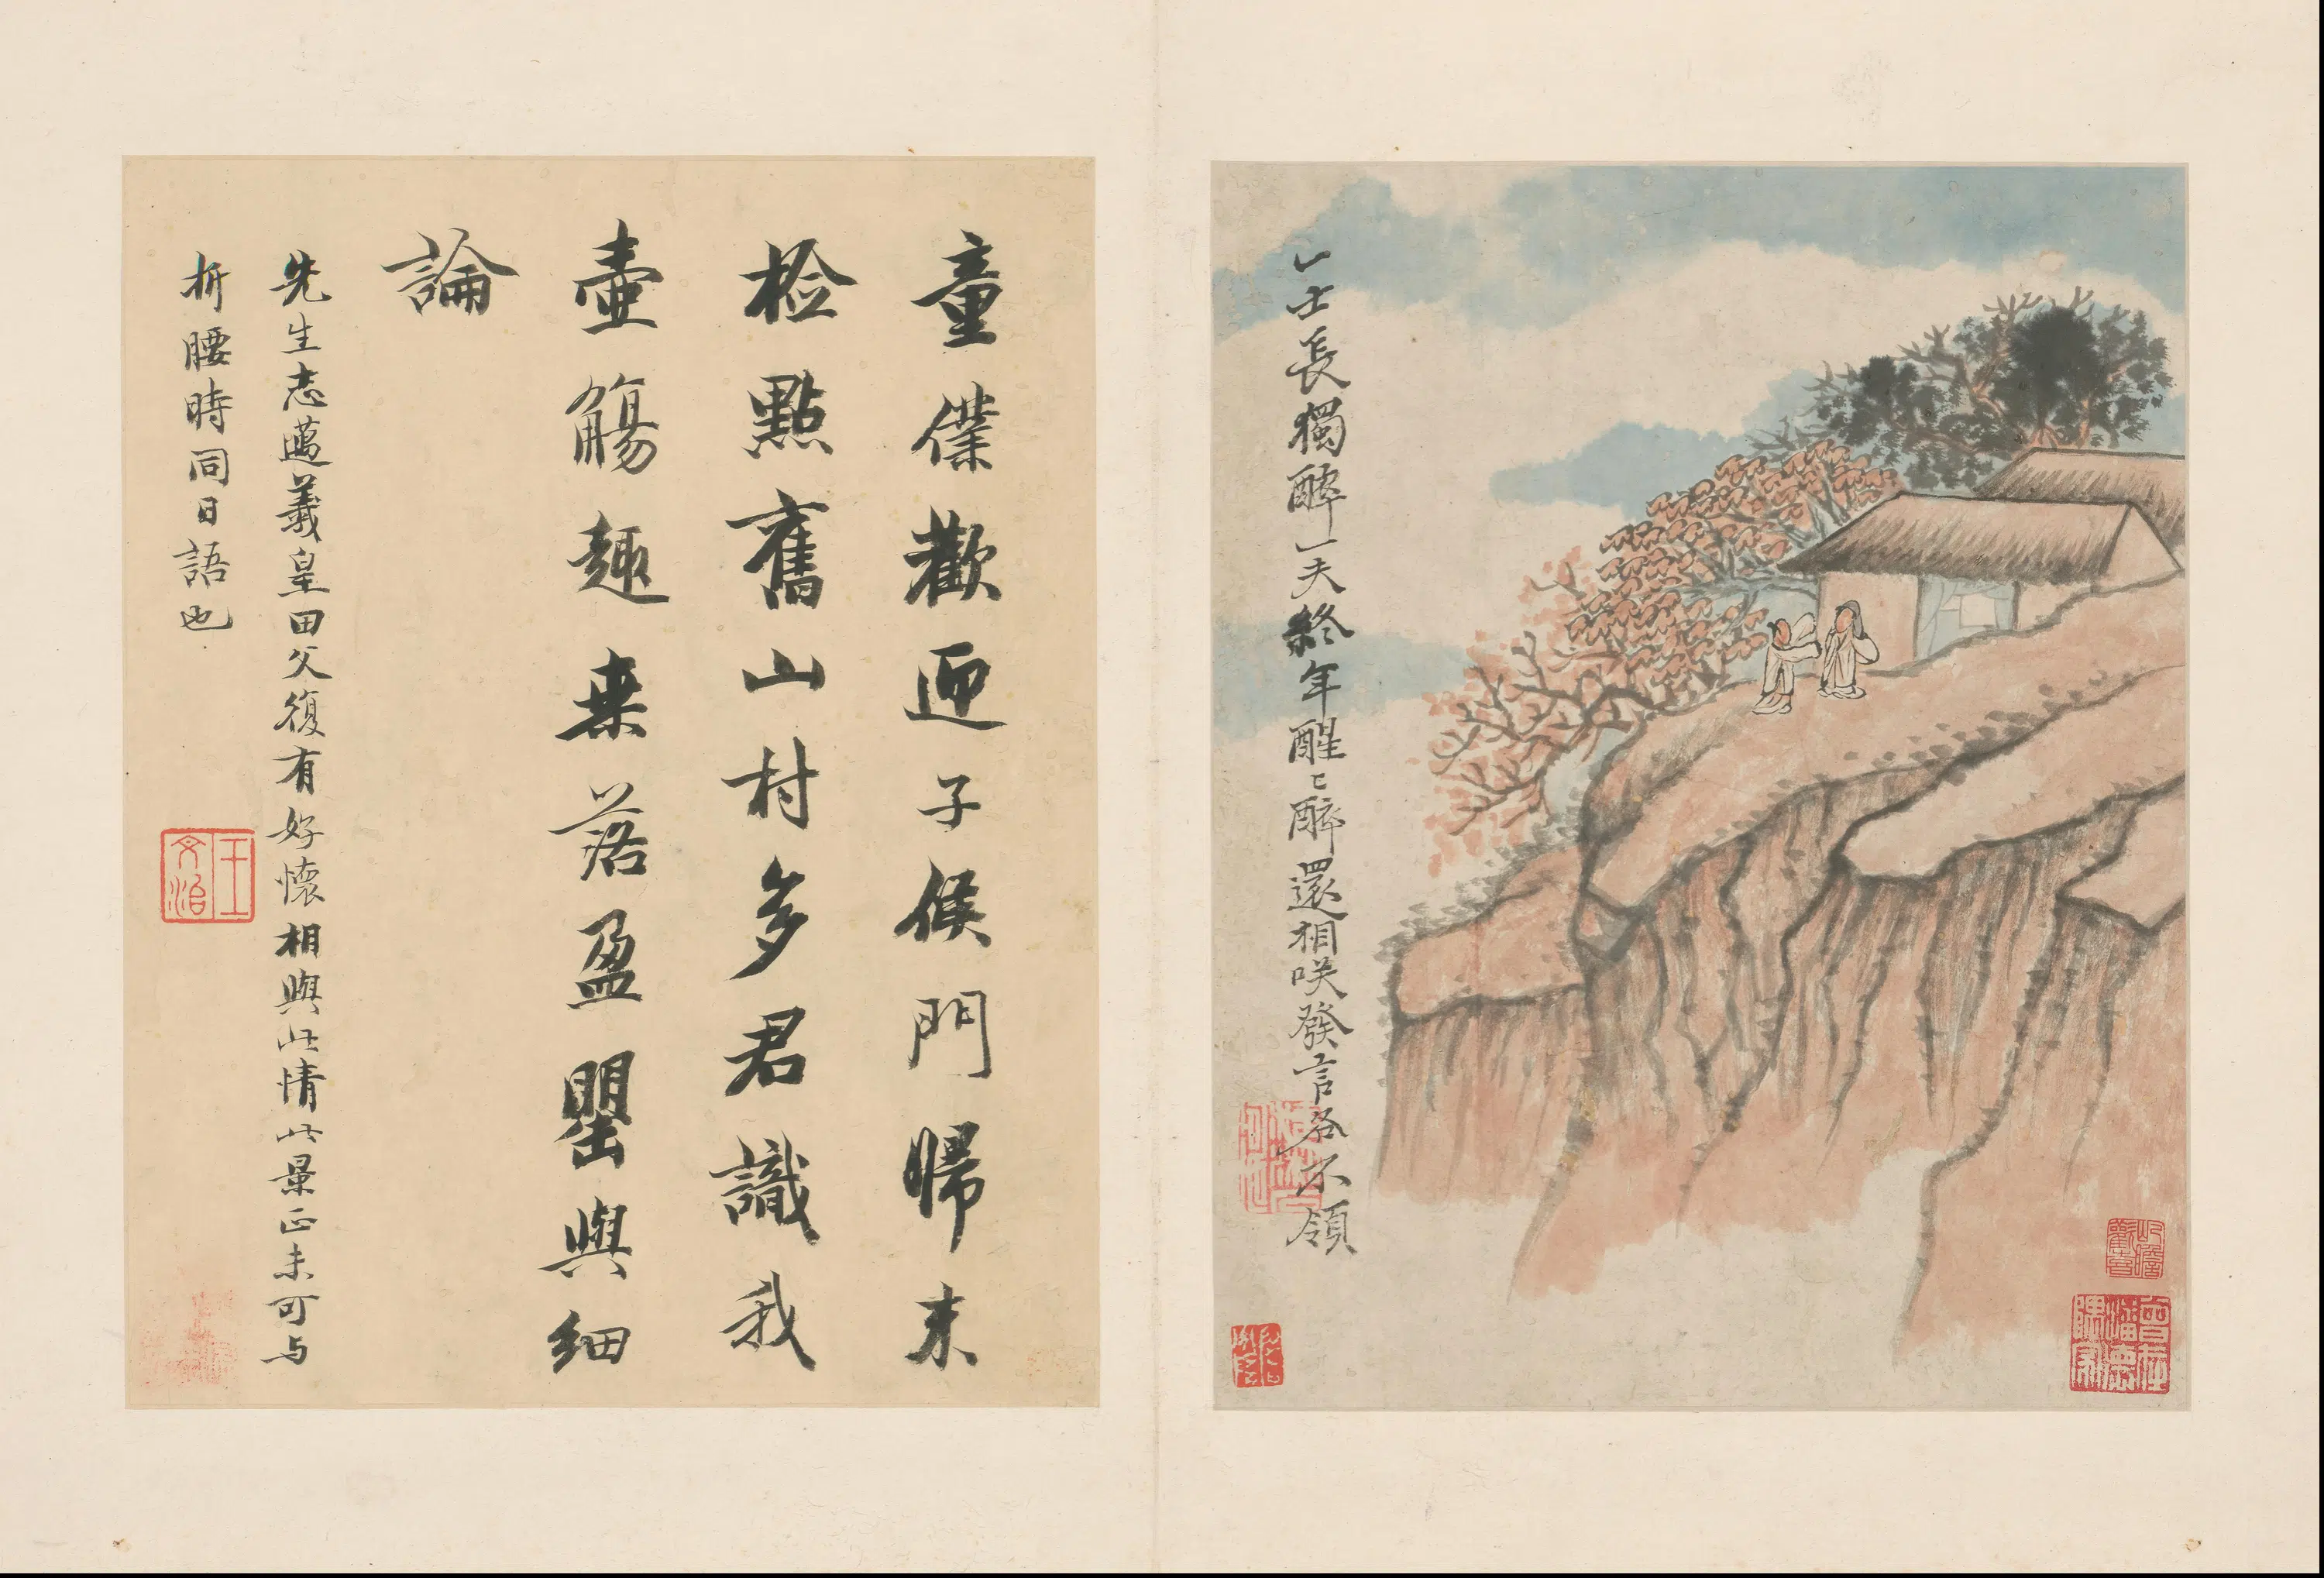 一士長獨醉一夫終年醒〻醉還相咲發言各不領
童僕歡迎子候門歸來
檢點舊山村多君識我
壺觴趣来落盈罌與細
論
先生志邁羲皇田父復有好懷相與此情此景正未可与
折腰時同日語也
王文治